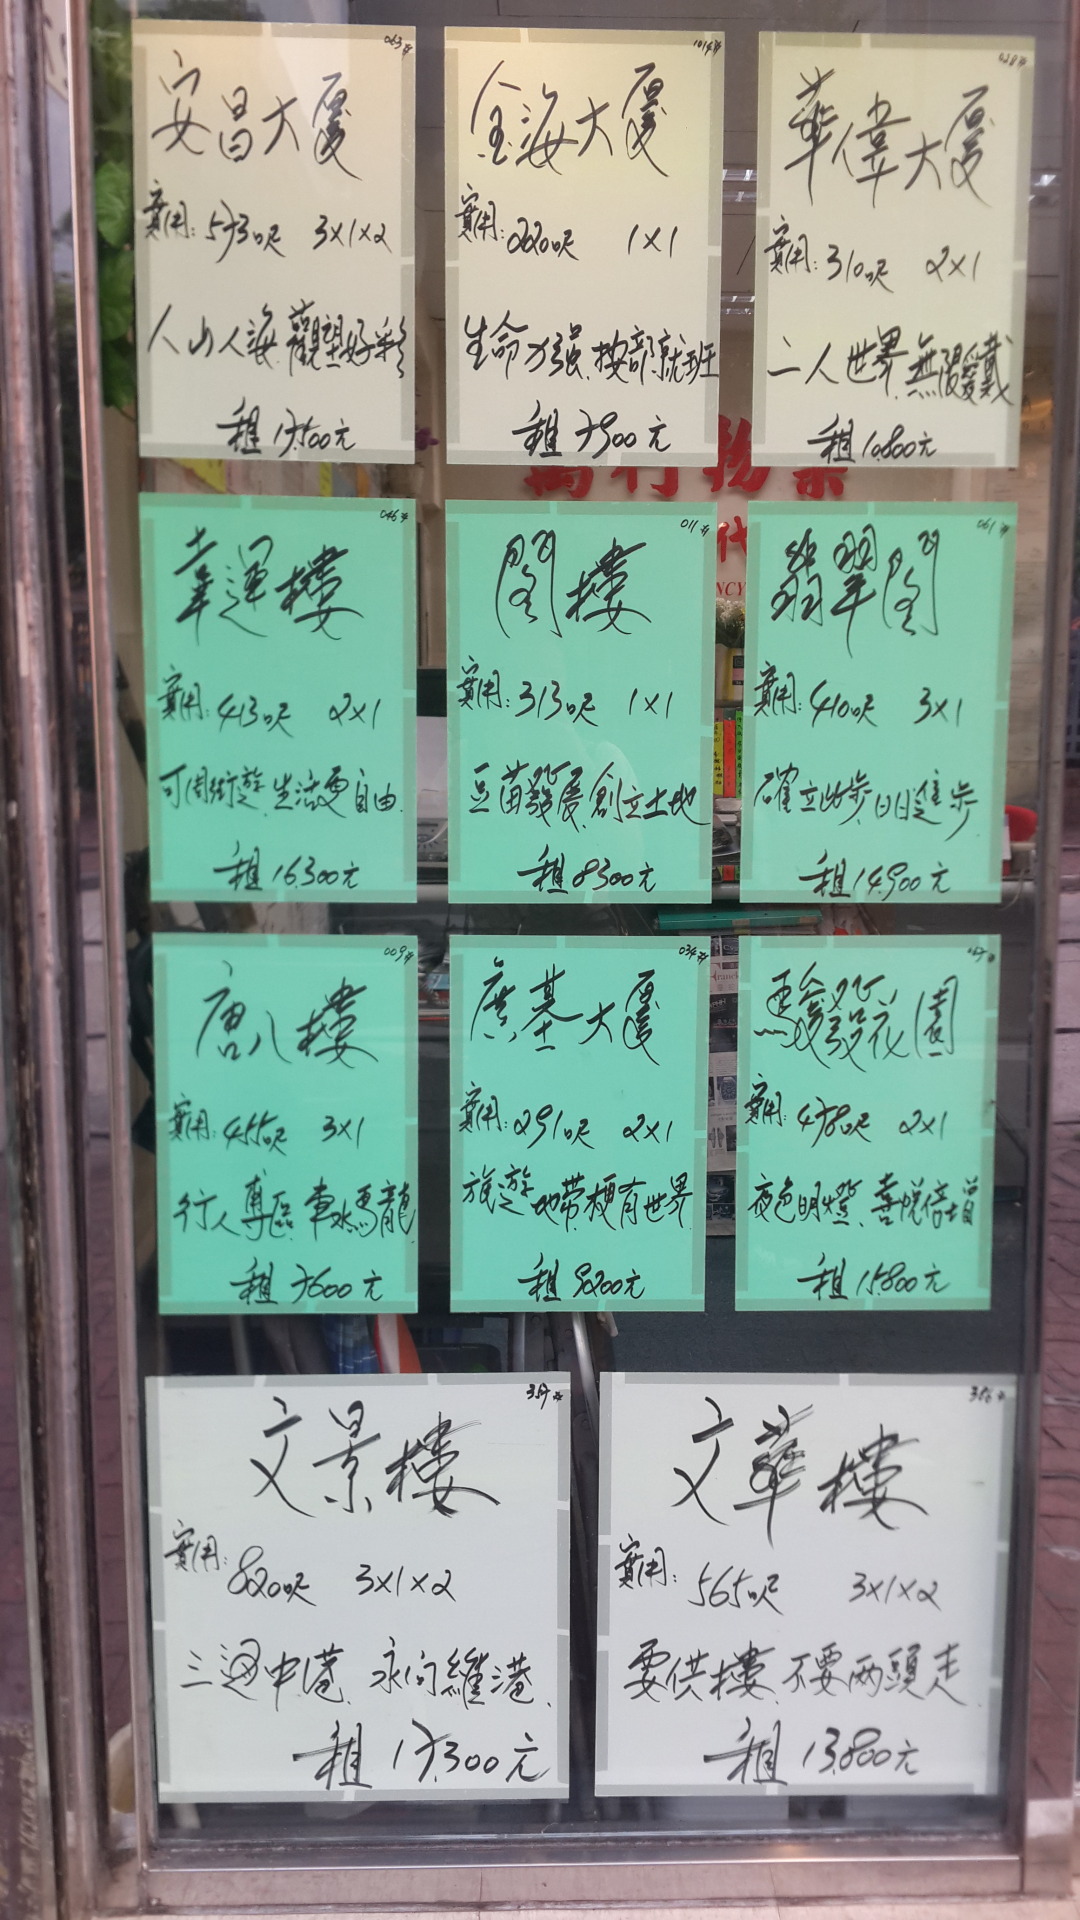 063#
安昌大廈
實用:573呎 3x1x2
人山人海.觀望好彩
租17,500元
1014#
金海大廈
實用:220呎 1x1
生命力強.按部就班
租7900元
028#
華偉大廈
實用:310呎 2x1
二人世界.無限愛戴
租10,800元
046#
幸運樓
實用:413呎 2x1
可周街遊.生活更自由.
租16,300元
011#
閣樓
實用:313呎 1x1
豆苗發展.創立土地
租8300元
061#
翡翠閣
實用:410呎 3x1
確立此步.日日進步.
租14,900元
009#
唐八樓
實用:455呎 3x1
行人專區.車水馬龍
租7600元
034#
廣基大廈
實用:291呎 2x1
旅遊地帶.梗有世界
租8200元
駿發花園
實用:478呎 2x1
夜色明燈.喜悅倍增
租15,800元
357#
文景樓
實用:820呎 3x1x2
三通中港.永向維港.
租17,300元
356#
文華樓
實用:565呎 3x1x2
要供樓.不要兩頭走.
租13,800元